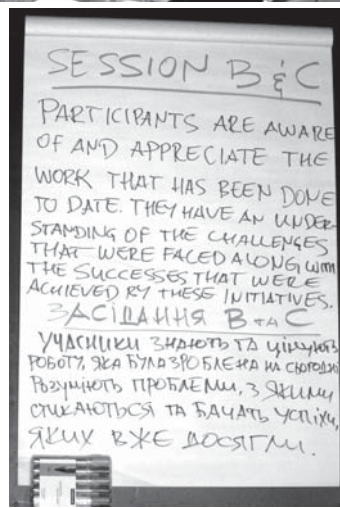 SESSION B & C
PARTICIPANTS ARE AWARE
OF AND APPRECIATE THE
WORK THAT HAS BEEN DONE
TO DATE. THEY HAVE AN UNDER-
STANDING OF THE CHALLENGES
THAT WERE FACED ALONG WITH
THE SUCCESSES THAT WERE
ACHIEVED BY THESE INITIATIVES.
ЗАСІДАННЯ В ТА С
УЧАСНИКИ ЗНАЮТЬ ТА ЦІНУЮТЬ
РОБОТУ, ЯКА БУЛА ЗРОБЛЕНА НА СЬОГОДНІ
РОЗУМІЮТЬ ПРОБЛЕМИ, З ЯКИМИ
СТИКАЮТЬСЯ ТА БАЧАТЬ УСПІХИ,
ЯКИХ ВЖЕ ДОСЯГЛИ.